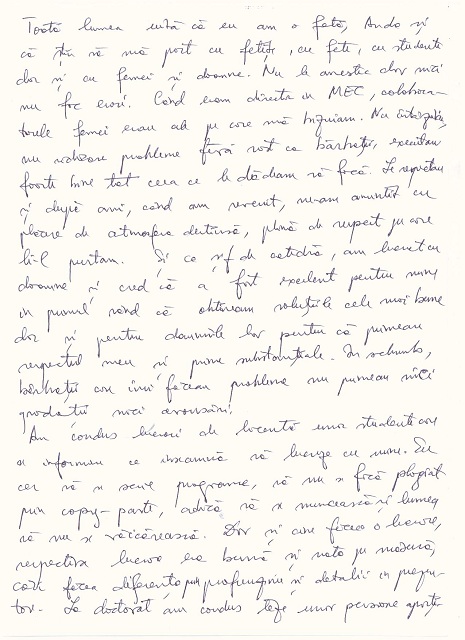 Toată lumea uită că eu am o fată, Anda și
că știu să mă port cu fetițe, cu fete, cu studente
dar și cu femei și doamne. Nu le amestec dar nici
nu fac erori. Când eram director in MEC, colabora-
toarele femei erau cele pe care mă bizuiam. Nu întârziau,
nu ridicau probleme fără rost ca bărbații, executau
foarte bine tot ceea ce le dădeam să facă. Le repectam
și după ani, când am revenit, mi-am amintit cu
plăcere de atmosfera destinsă, plină de respect pe care
li-l purtam. Și ca șef de catedră, am lucrat cu
doamne și cred că a fost excelent pentru mine
in primul rând că obțineam soluțiile cele mai bune
dar și pentru doamnele lor pentru că primeau
respectul meu și prime substanțiale. In schimb,
bărbații care imi făceau probleme nu primeau nici
gradații nici avansări.
Am condus lucrări de licență unor studente care
se informau ce inseamnă să lucreze cu mine. Eu
cer să se scrie programe, să nu se facă plagiat
prin copy-paste, adică să se muncească și lumea
să nu se văicărească. Dar și cine făcea o lucrare,
respectiva lucrare era bună și nota pe măsură,
care făcea diferența prin profunzime și detalii in
tor. La doctorat am condus teze unor persoane